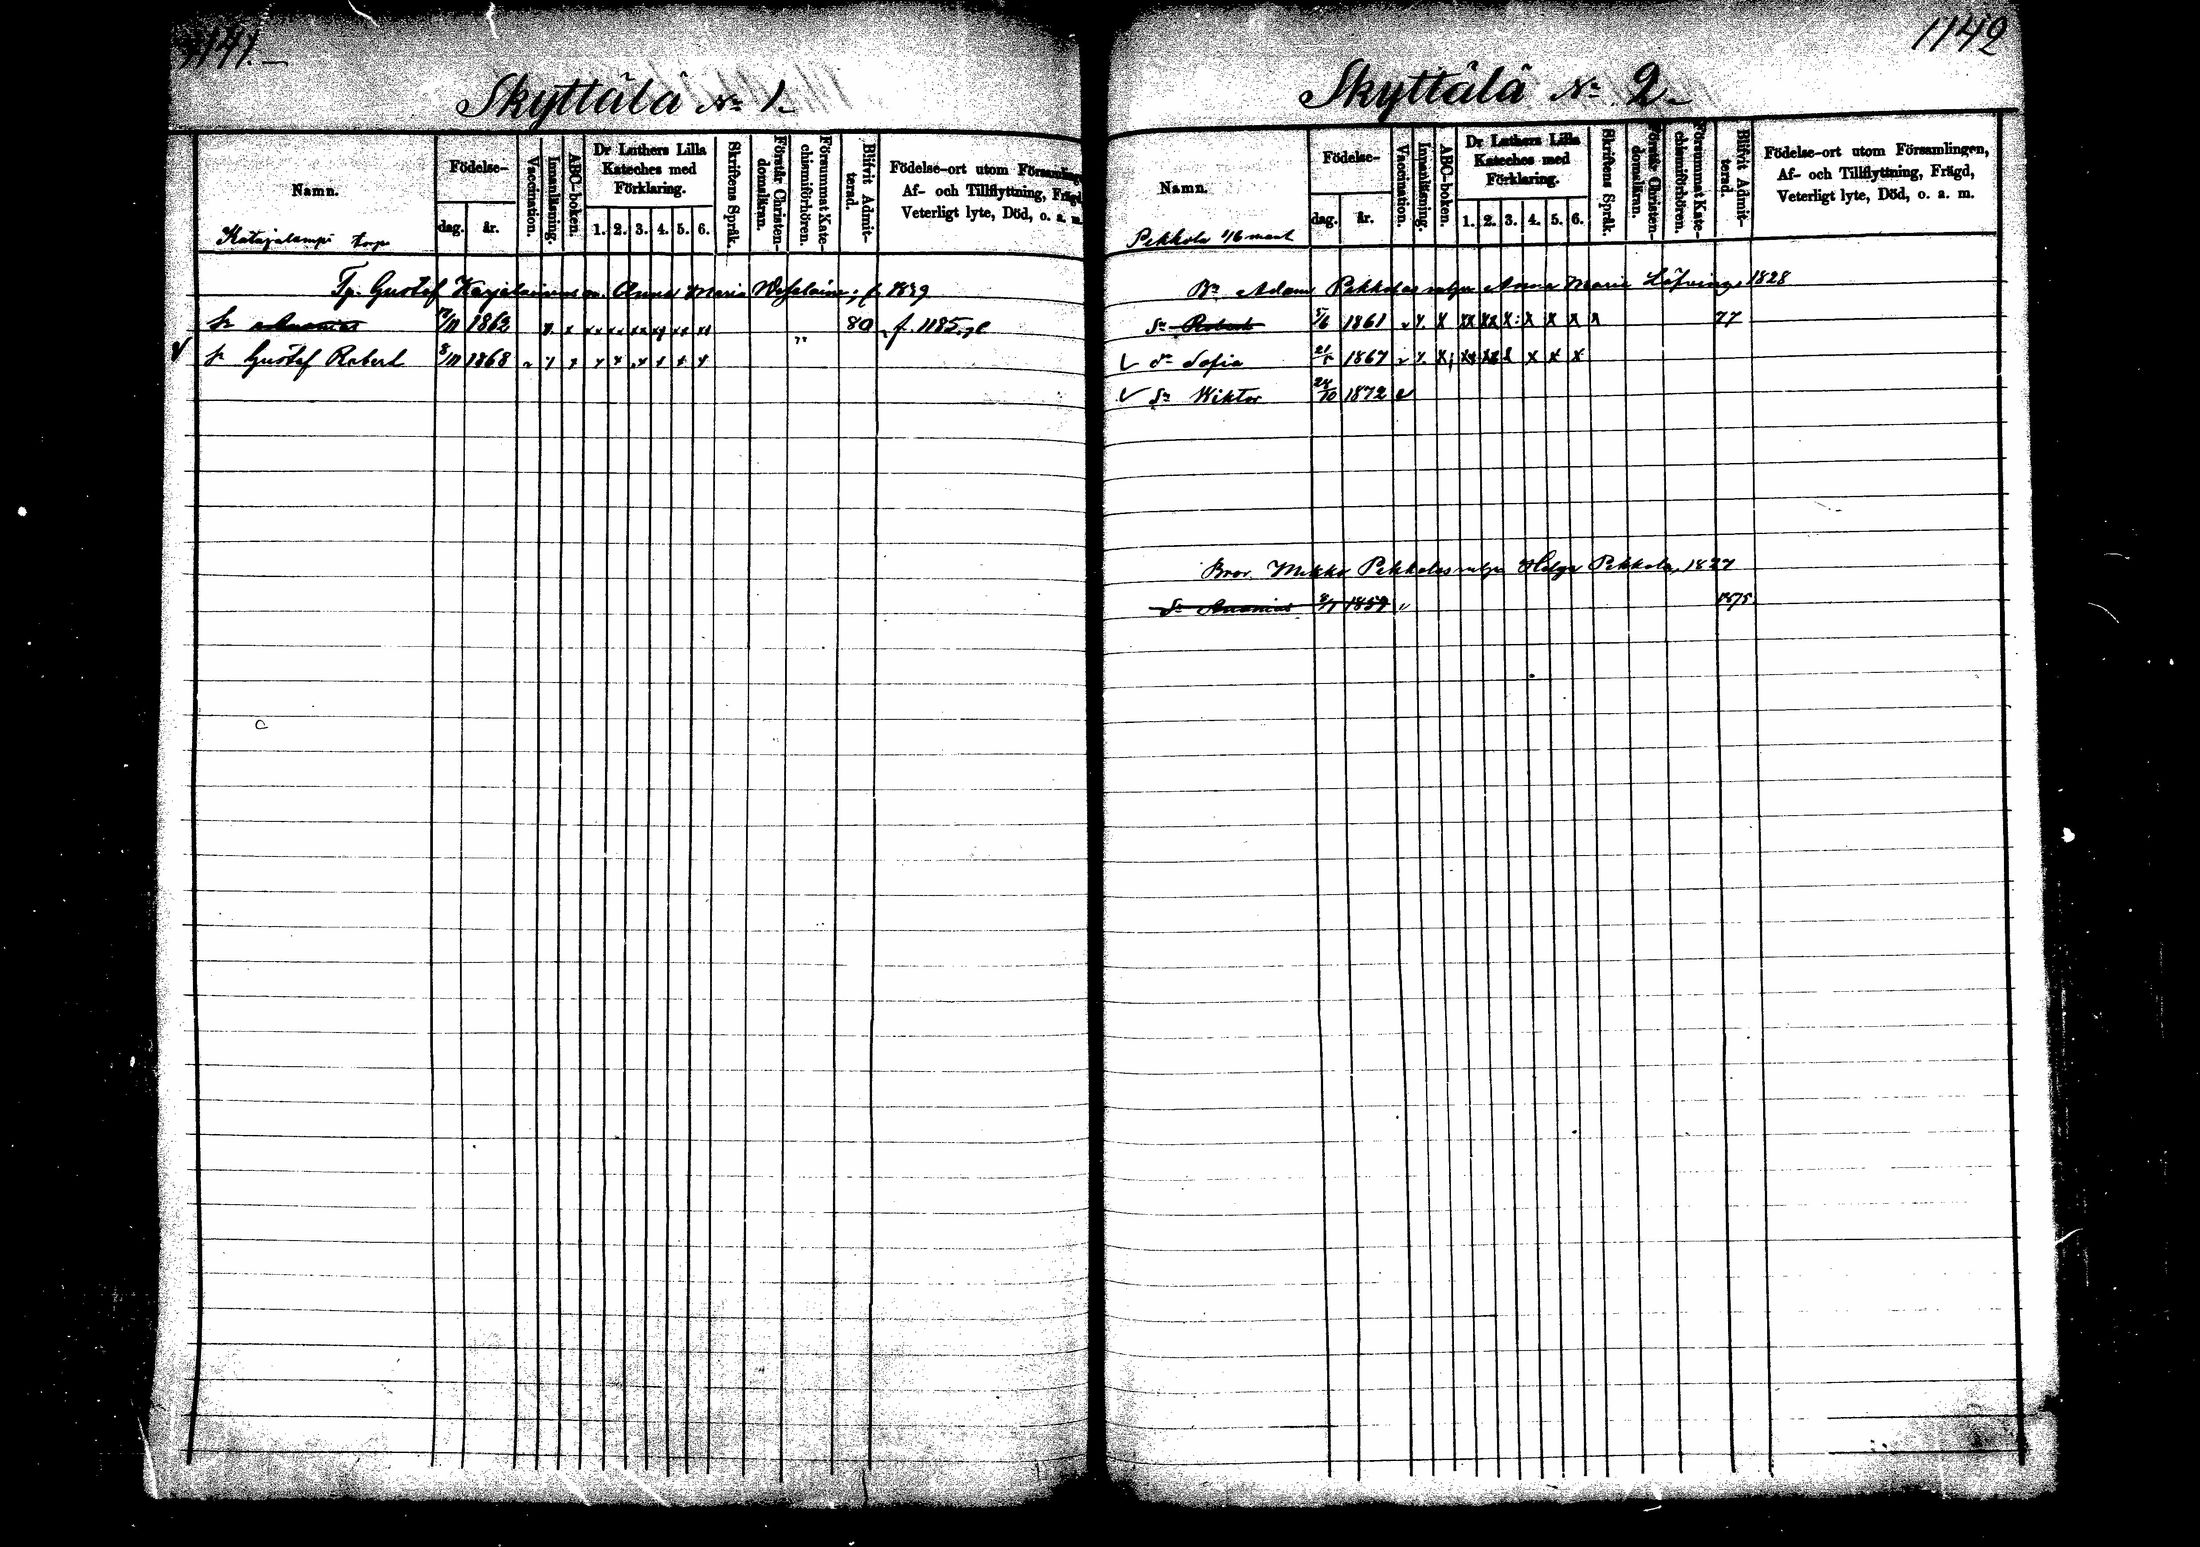 1141.
Skyttälä No 1.
Namn.
Födelse-
dag.
år.
Vaccination.
Innanläsning.
ABC-boken.
Dr Luthers Lilla
Kateches med
Förklaring.
1. 2. 3. 4. 5. 6.
Skriftens Språk.
Förstår Christen-
domsläran.
Försummat Kate-
chismiförhören.
Blifvit Admit-
terad.
Födelse-ort utom Församlingen,
Af- och Tillflyttning, Frägd,
Veterligt lyte, Död, o. a. m.
Katajalampi torp
Tp. Gustaf Karjalainens m. Anna Maria ; f. 1839
sn Ananias 17/11 1862 x x xx xx xx xx xx 80 f. 1185.
sn Gustaf Robert 8/11 1868 x x x x x x x x
1142
Skyttälä No 2.
Namn.
Födelse-
dag.
år.
Vaccination.
Innanläsning.
ABC-boken.
Dr Luthers Lilla
Kateches med
Förklaring.
1. 2. 3. 4. 5. 6.
Skriftens Språk.
Förstår Christen-
domsläran.
Försummat Kate-
chismiförhören.
Blifvit Admit-
terad.
Födelse-ort utom Församlingen,
Af- och Tillflyttning, Frägd,
Veterligt lyte, Död, o. a. m.
Pekkola 1/6 mant
Bn Adam Pekkolas Anna Maria Löfving 1828
Sn Robert 5/6 1861 v x x xx xx x x x x x 77
dn Sofia 21/5 1867 v x x xx xx x x x x
Sn Wiktor 24/10 1872 v
Bror. Mikko Pekkolas Helga Pekkola, 1827
Sn Ananias 8/1 1859 " 1875.